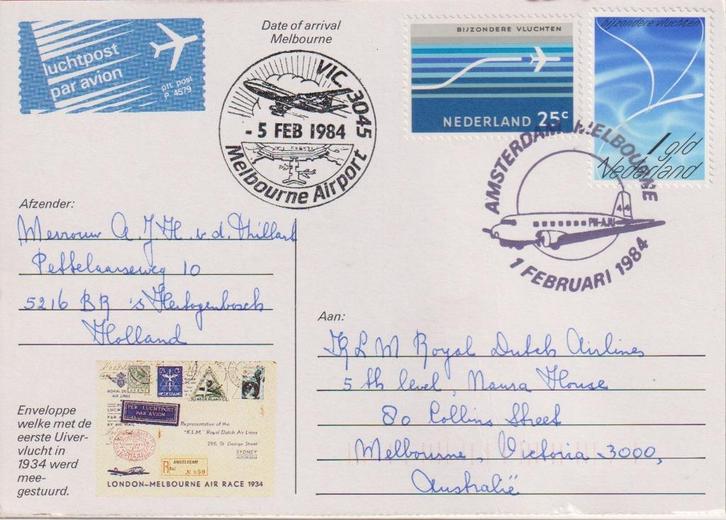 luchtpost
par avion
ptt post
P 4579
Date of arrival
Melbourne
VIC. 3045
- 5 FEB 1984
Melbourne Airport
BIJZONDERE VLUCHTEN
NEDERLAND 25c
bijzondere vluchten
1 gld
Nederland
AMSTERDAM MELBOURNE
PH-AJU
44
1 FEBRUARI 1984
Afzender:
Mevrouw A. J. H. v. d. Thillart
Pettelaarseweg 10
5216 BR 's Hertogenbosch
Holland
Aan:
KLM Royal Dutch Airlines
5 th level, Nauru House
80 Collins Street
Melbourne, Victoria 3000,
Australië
Enveloppe
welke met de
eerste Uiver-
vlucht in
1934 werd
mee-
gestuurd.
PER LUCHTPOST
PAR AVION
Representation of the
"K.L.M." Royal Dutch Air Lines
255, St. George Street
SYDNEY
AMSTERDAM
R
LONDON-MELBOURNE AIR RACE 1934